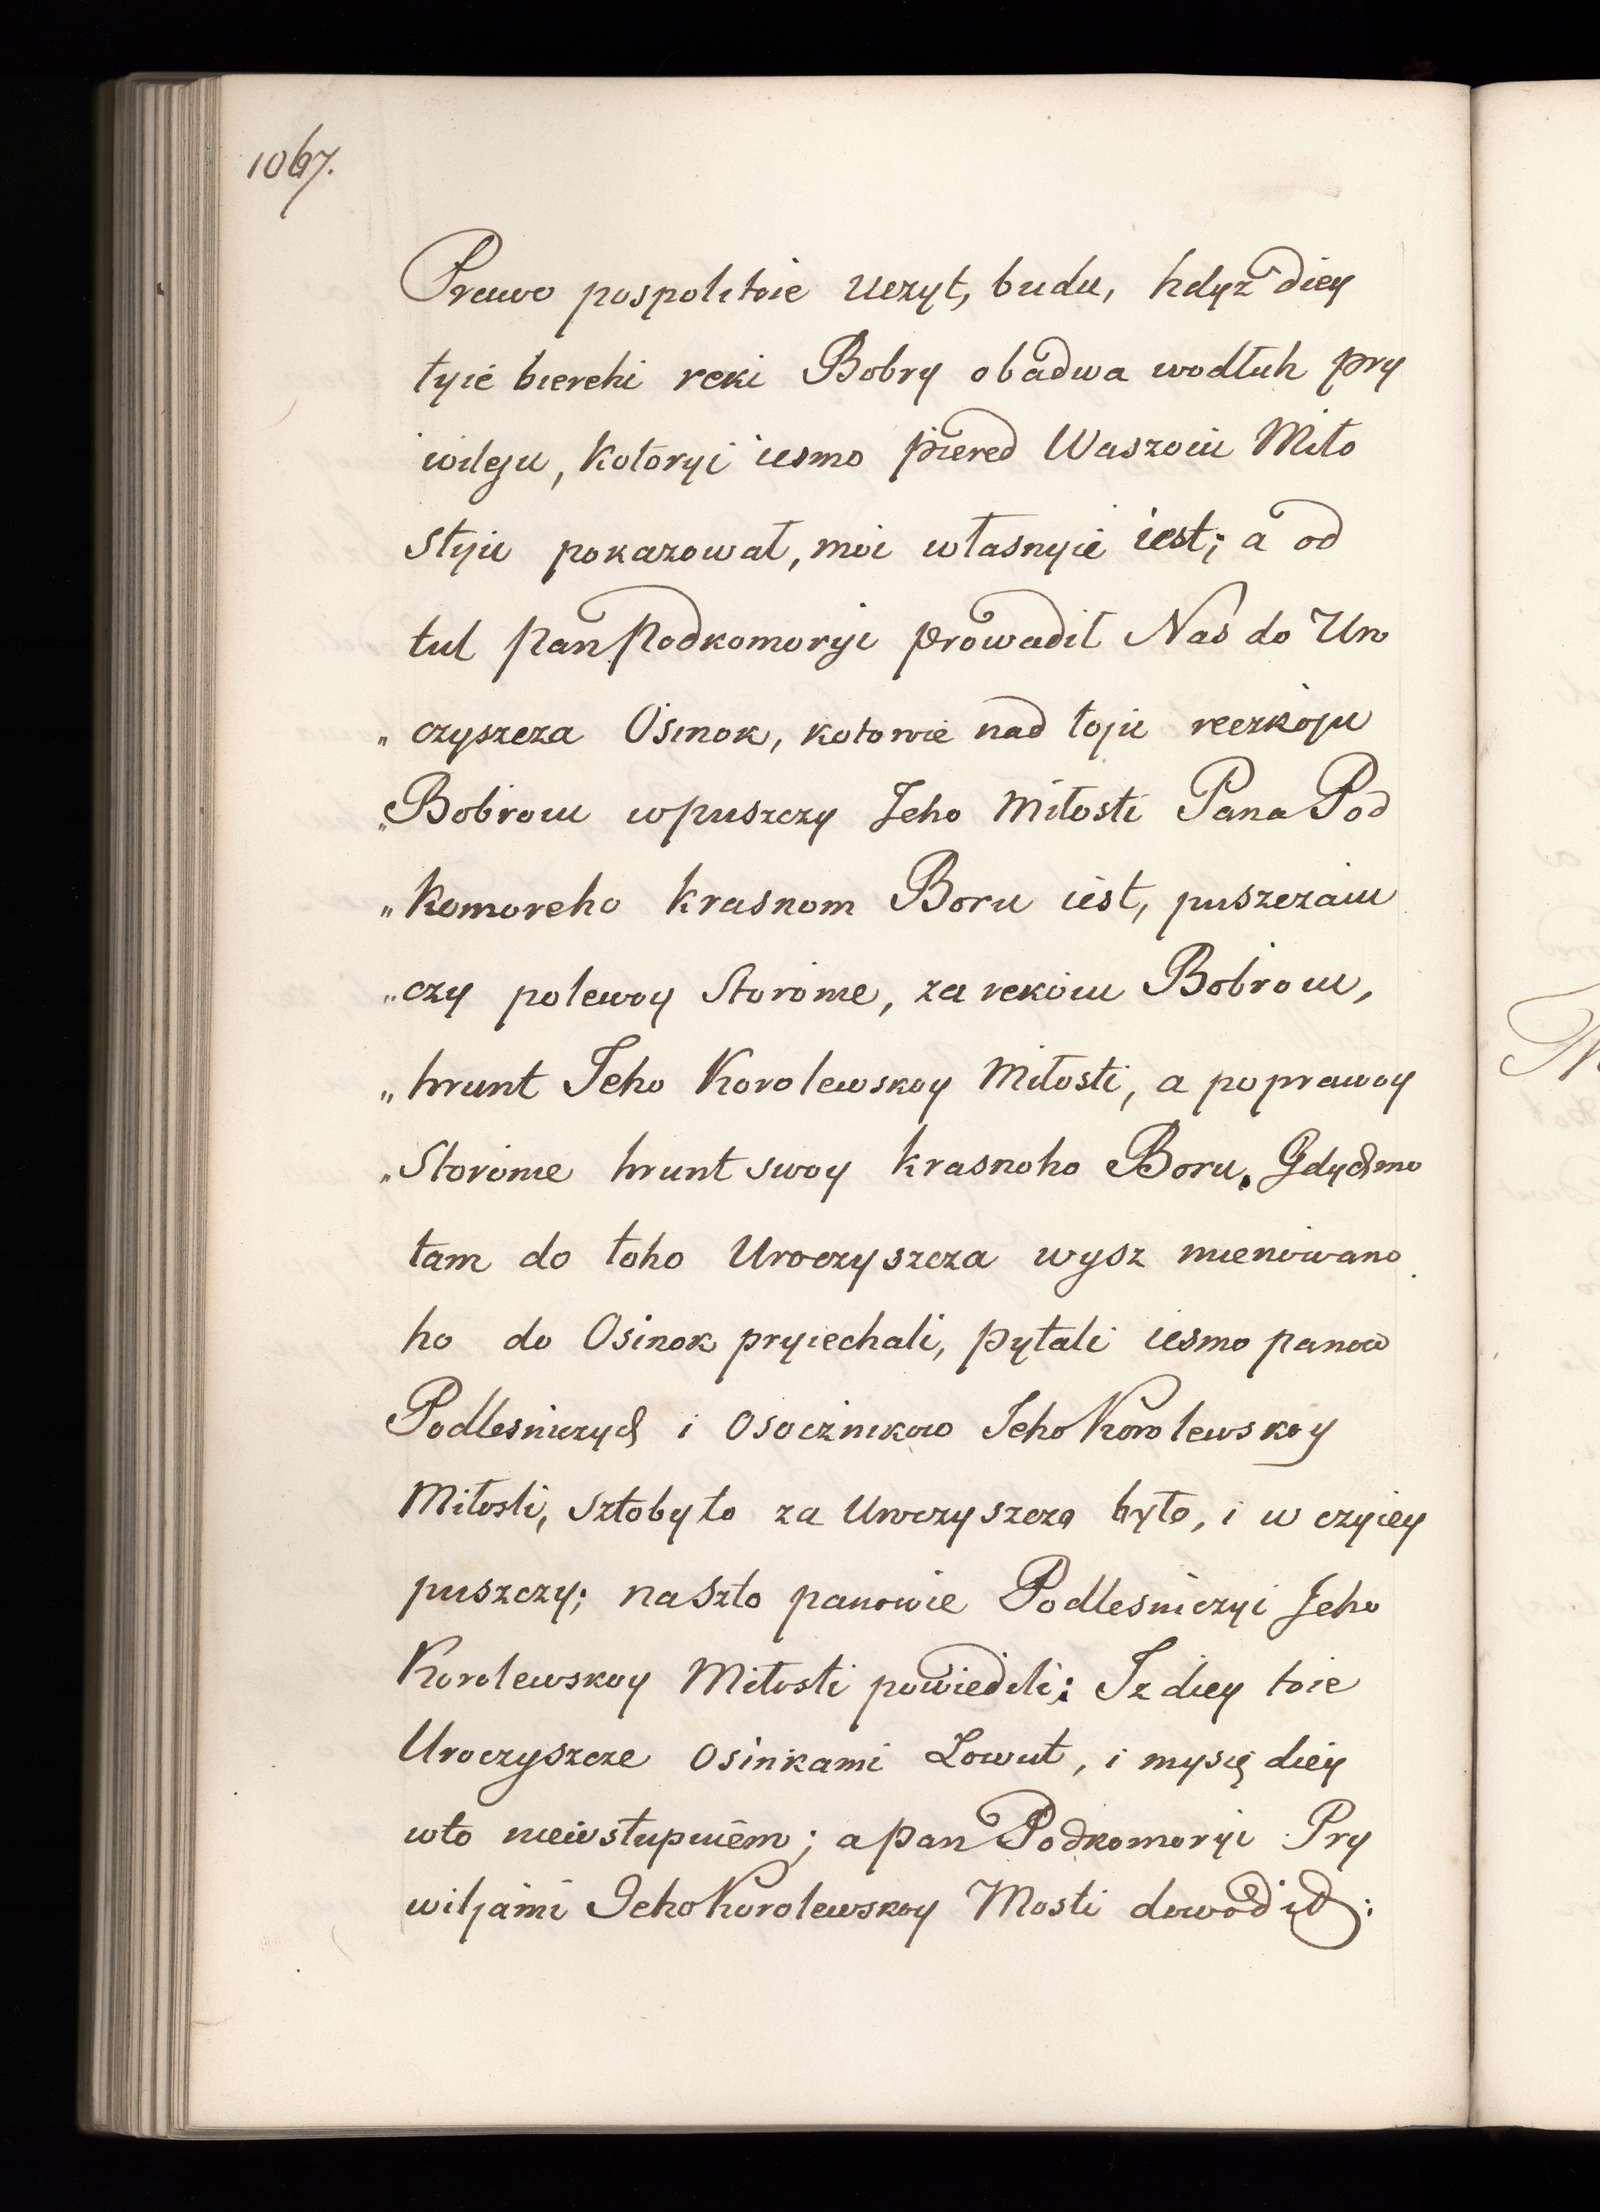 1067.
Prawo pospolitoie uczyt, budu, hdyż diey
tyie bierehi reki Bobry obadwa wodłuh pry
wilegu, kotoryi iesmo pered Waszoiu Miło
styiu pokazował, moi własnyie iest; a od
tul Pan Podkomoryi prowadil Nas do Uro
„ czyszcza Osinok, kotoroie nad toiu reczkoju
„ Bobroiu w puszczy Jeho Miłosti Pana Pod
„ Komoreho krasnom Boru iest, puszczaiu
„ czy polewoy Storonie, za rekoiu Bobroiu,
„ hrunt Jeho Korolewskoy Miłosti, a po prawoy
„ Storonie hrunt swoy krasnoho Boru. Gdychmo
tam do toho Uroczyszcza wysz mienowano
ho do Osinok pryiechali, pytali iesmo panow
Podlesniczych i Osocznikow Jeho Korolewskoy
Miłosti, sztoby to za Uroczyszczo było, i w czyiey
puszczy; na szto panowie Podlesniczyi Jeho
Korolewskoy Miłosti powiedili: Iz diey toie
Uroczyszcze Osinkami Zowut, i my się diey
w to nie wstupuiem; a pan Podkomoryi Pry
wiljami Jeho Korolewskoy Mosti dowodił: